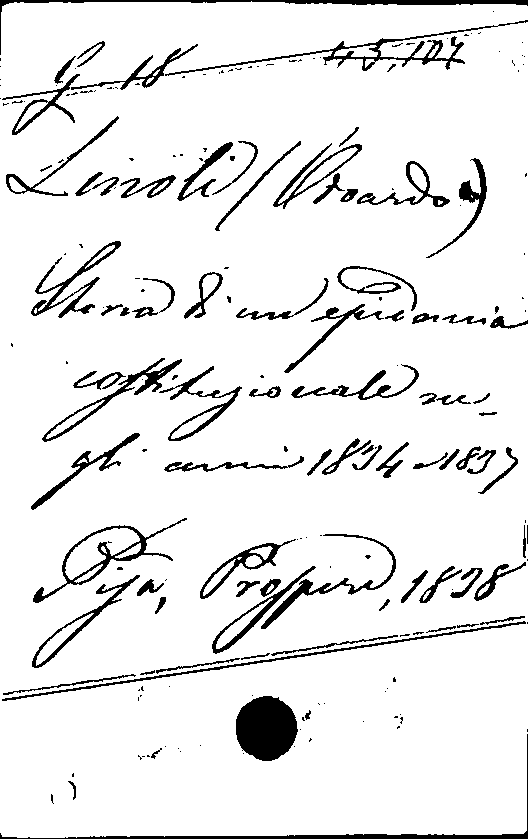 G 18 45,107
Linoli (Odoardo)
Storia d'un epidemia
costituzionale ne-
gli anni 1834-1837
Pisa, Prosperi, 1838